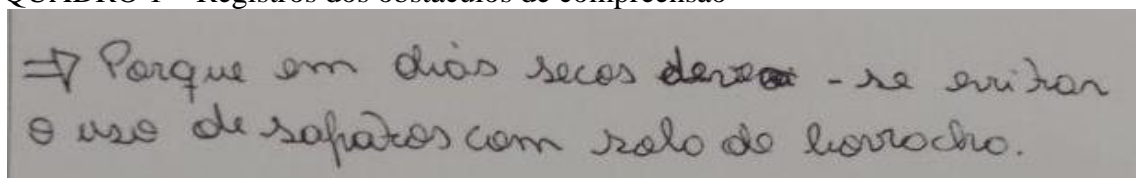 QUADRO 1 – Registros dos obstáculos de compreensão
⇒ Porque em dias secos deve - se evitar
o uso de sapatos com solo de borracha.